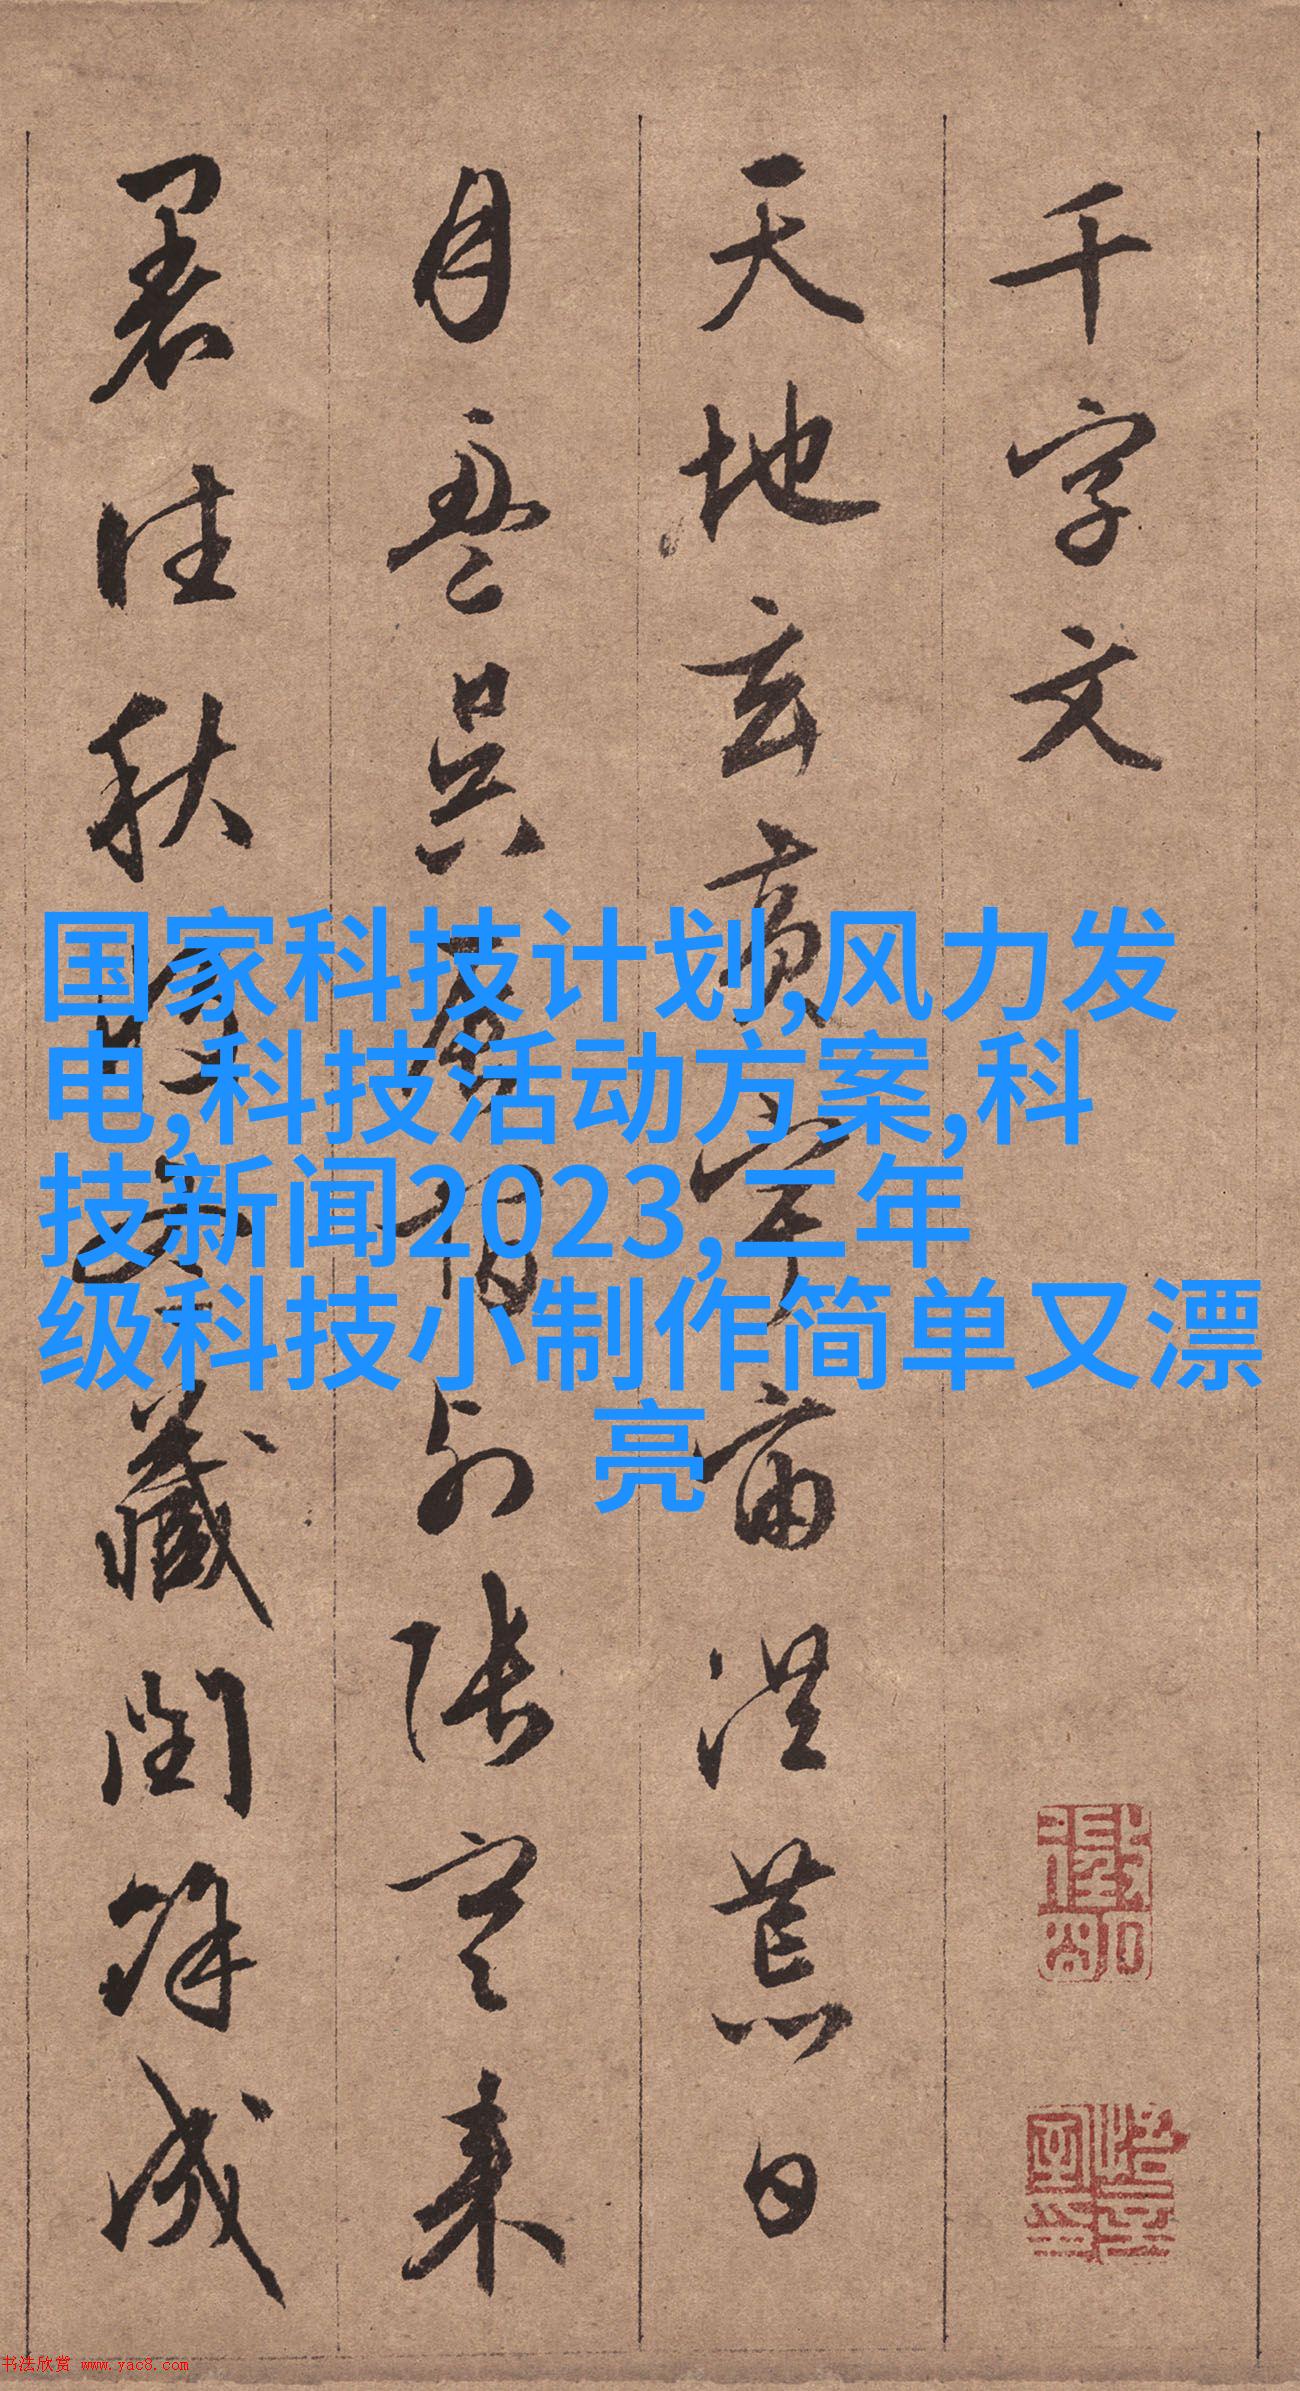 千字文
天地玄黄宇宙洪荒日
月盈昃辰宿列張寒来
暑往秋收冬藏閏餘成
国家科技计划,风力发
电,科技活动方案,科
技新闻2023,二年
级科技小制作简单又漂
亮
书法欣赏 www.yac8.com